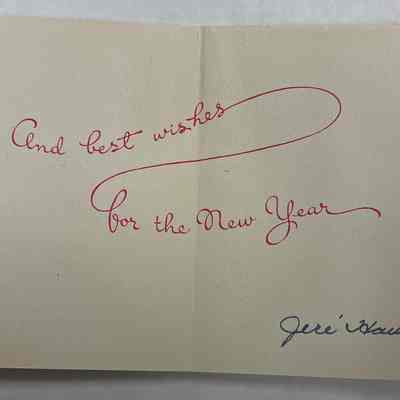 And best wishes
for the New Year
Jeré